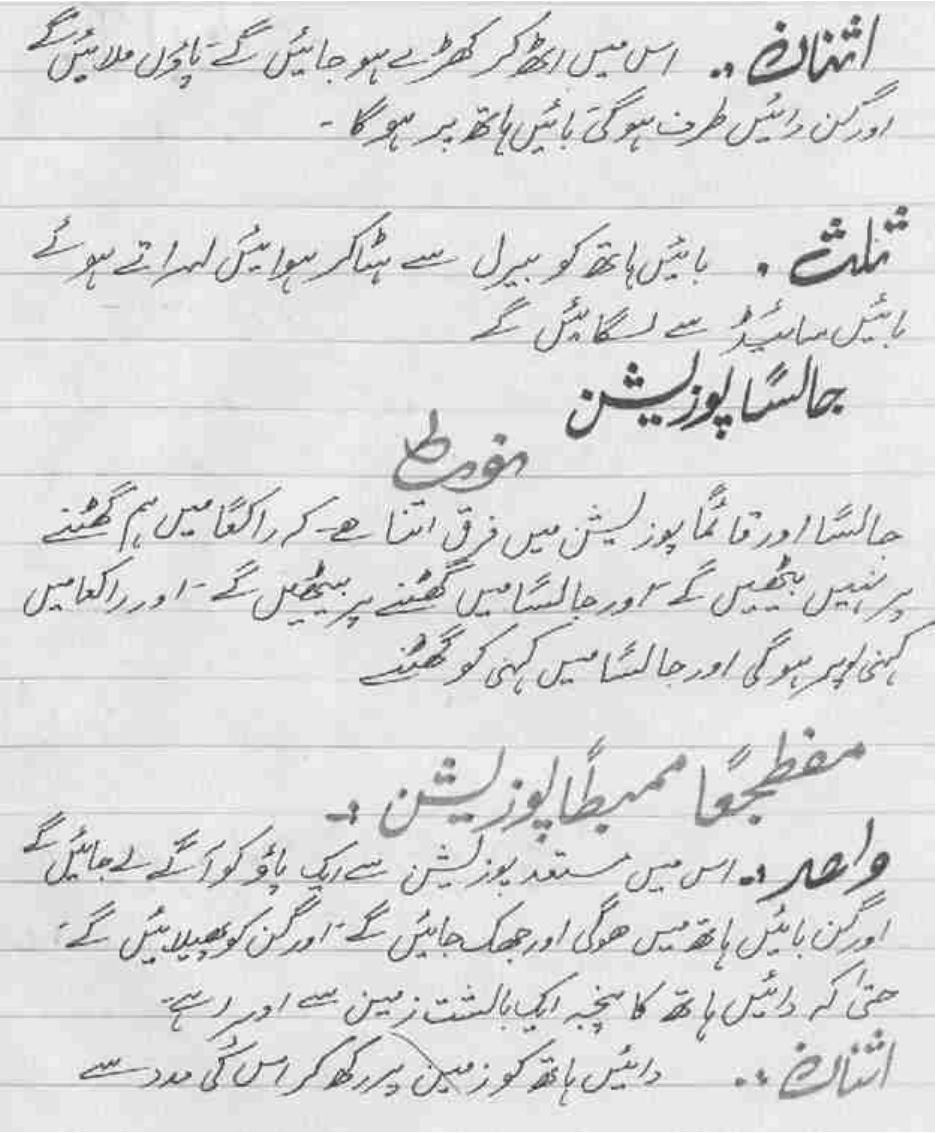 اثنان :. اس میں اٹھ کر کھڑے ہو جائیں گے۔ پاؤں ملائیں گے
اور گن دائیں طرف ہو گی بائیں ہاتھ پر ہو گا ۔
ثلث . بائیں ہاتھ کو بیرل سے ہٹا کر ہوا میں لہراتے ہوئے
بائیں سائیڈ سے لگائیں گے
جالسًا پوزیشن
نوٹ
جالسًا اور قائمًا پوزیشن میں فرق اتنا ہے۔ کہ راکعًا میں ہم گھٹنے
پر نہیں بیٹھیں گے۔ اور جالسًا میں گھٹنے پر بیٹھیں گے۔ اور راکعا میں
کہنی اوپر ہو گی اور جالسًا میں کہنی کو گھٹنے
مفطجعًا ممبطًا پوزیشن :۔
واحد :. اس میں مستعد پوزیشن سے ایک پاؤ کو آگے لے جائیں گے
اور گن بائیں ہاتھ میں ھوگی اور جھک جائیں گے۔ اور گن کو پھیلائیں گے۔
حتیٰ کہ دائیں ہاتھ کا پنجہ ایک بالشت زمین سے اوپر رہے۔
اثنان :. دائیں ہاتھ کو زمین پر رکھ کر اس کی مدد سے